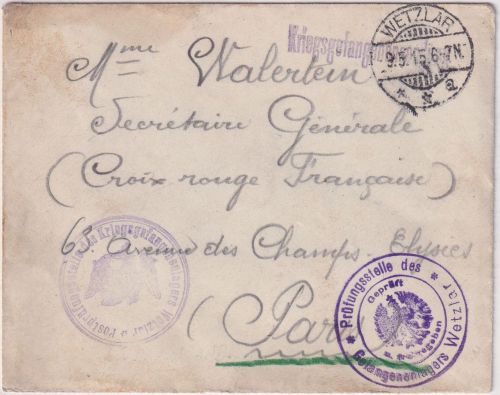 Kriegsgefangenensendung
WETZLAR
9.5.15.6-7N.
Mme Walerlein
Secrétaire Générale
(Croix rouge Française)
63 Avenue des Champs Elysées
(Paris
Postprüfungsstelle des Kriegsgefangenenlagers Wetzlar
Prüfungsstelle des
Gefangenenlagers Wetzlar
Geprüft
u. freigegeben